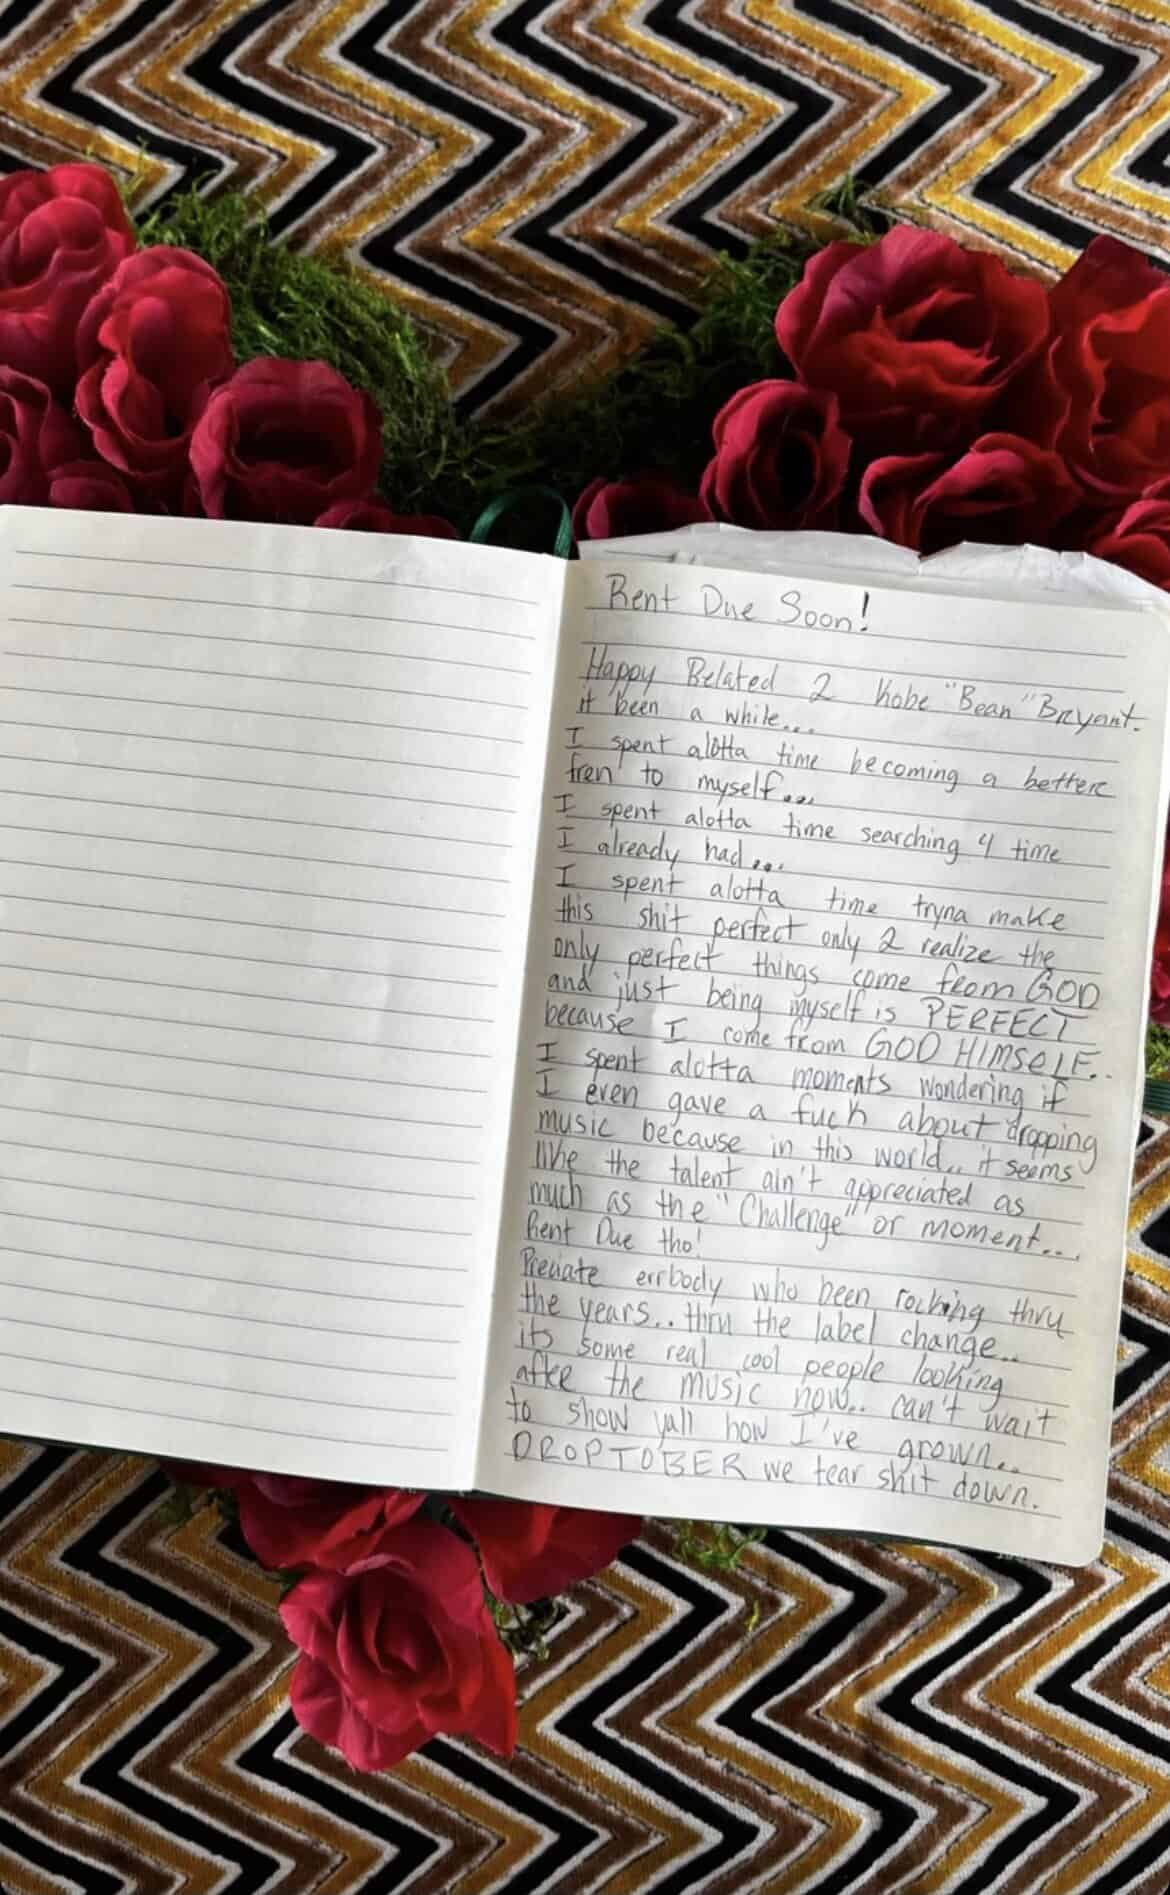 Rent Due Soon!
Happy Belated 2 Kobe "Bean" Bryant.
it been a while...
I spent alotta time becoming a better
fren to myself...
I spent alotta time searching 4 time
I already had...
I spent alotta time tryna make
this shit perfect only 2 realize the
only perfect things come from GOD
and just being myself is PERFECT
because I come from GOD HIMSELF..
I spent alotta moments wondering if
I even gave a fuck about dropping
music because in this world.. it seems
like the talent ain't appreciated as
much as the "Challenge" or moment....
Rent Due tho!
Preciate errbody who been rocking thru
the years.. thru the label change..
its some real cool people looking
after the music now.. can't wait
to show yall how I've grown..
DROPTOBER we tear shit down.